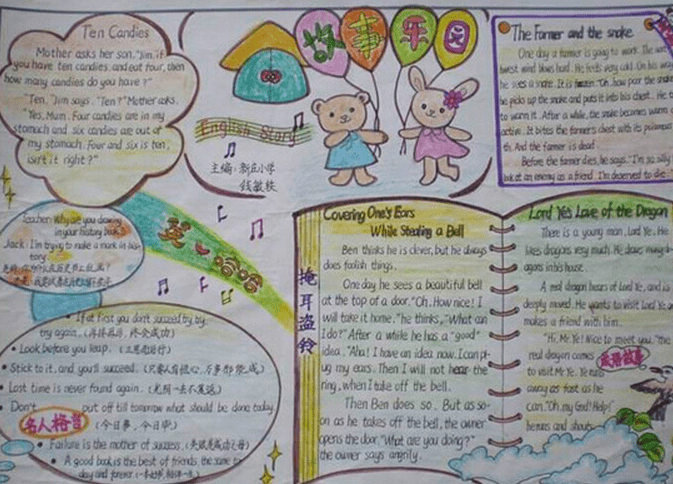 Ten Candies
Mother asks her son, "Jim, if
you have ten candies, and eat four, then
how many candies do you have?"
"Ten," Jim says. "Ten?" Mother asks.
Yes, Mum. Four candies are in my
stomach and six candies are out of
my stomach. Four and six is ten,
isn't it right?"
故事乐园
English Story
主编:新庄小学
钱敏轶
The Farmer and the snake
One day a farmer is going to work. The
west wind blows hard. He feels very cold. On his way
he sees a snake. It is frozen. "Oh, how poor the snake
he picks up the snake and puts it into his chest. He
to warm it. After a while, the snake becomes warm
active. It bites the farmer's chest with its poisonous
th. And the farmer is dead.
Before the farmer dies, he says, "I'm so silly
look at an enemy as a friend. I'm deserved to die.
Teacher: Why are you drawing
in your history book?
Jack: I'm trying to make a mark in his
tory.
英哈哈
If at first you don't succeed, try, try,
try again. (再接再厉,终会成功)
Look before you leap. (三思而后行)
Stick to it, and you'll succeed. (只要人有恒心,万事都能成)
Lost time is never found again. (光阴一去不复返)
Don't put off till tomorrow what should be done today.
名人格言 (今日事,今日毕)
Failure is the mother of success. (失败是成功之母)
A good book is the best of friends, the same to
day and forever.
掩耳盗铃
Covering One's Ears
While Stealing a Bell
Ben thinks he is clever, but he always
does foolish things.
One day he sees a beautiful bell
at the top of a door. "Oh, How nice! I
will take it home," he thinks, "What can
I do?" After a while he has a "good"
idea. "Aha! I have an idea now. I can pl-
ug my ears. Then I will not hear the
ring, when I take off the bell.
Then Ben does so. But as so-
on as he takes off the bell, the owner
opens the door, "What are you doing?"
the owner says angrily.
Lord Ye's Love of the Dragon
There is a young man, Lord Ye. He
likes dragons very much. He draws many dr-
agons in his house.
A real dragon hears of Lord Ye, and is
deeply moved. He wants to visit Lord Ye and
makes a friend with him.
"Hi, Mr Ye! Nice to meet you," the
real dragon comes
to visit Mr Ye. Ye runs
away as fast as he
can. "Oh, my God! Help!"
he runs and shouts.
成语故事